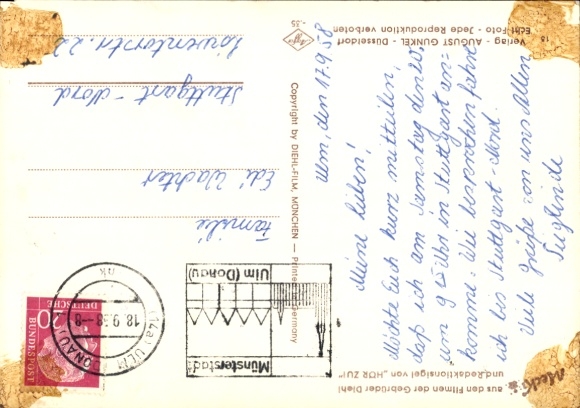 aus den Filmen der Gebrüder Diehl
und Redaktionsigel von „HÖR ZU!"
Mecki
Ulm, den 17.9.58
Meine Lieben!
Möchte Euch kurz mitteilen,
daß ich am Samstag den
um 9 Uhr in Stuttgart an-
komme. Wie besprochen fahre
ich bis Stuttgart-Nord.
Viele Grüße von uns Allen
Sieglinde
Copyright by DIEHL-FILM, MÜNCHEN — Printed Germany
Agfa
-.35
Verlag - AUGUST GUNKEL - Düsseldorf
Echt-Foto - Jede Reproduktion verboten
Münsterstadt
Ulm (Donau)
(14a) ULM
DONAU
18.9.58-8
nk
20
DEUTSCHE
BUNDESPOST
Familie
Edi Wachter
Stuttgart-Nord
Löwentorstr. 22